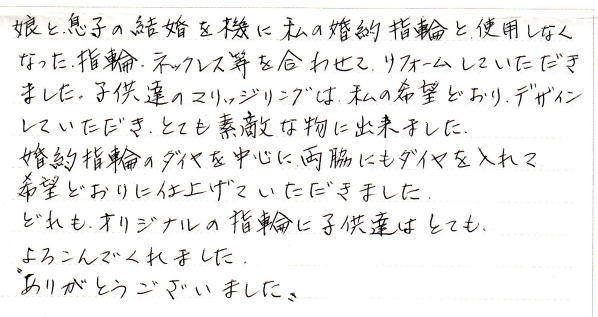 娘と、息子の結婚を機に私の婚約指輪と、使用しなく
なった、指輪・ネックレス等を合わせて、リフォームしていただき
ました。子供達のマリッジリングは、私の希望どおり、デザイン
していただき、とても素敵な物に出来ました。
婚約指輪のダイヤを中心に、両脇にもダイヤを入れて
希望どおりに仕上げていただきました。
どれも、オリジナルの指輪に子供達はとても、
よろこんでくれました。
〝ありがとうございました〟